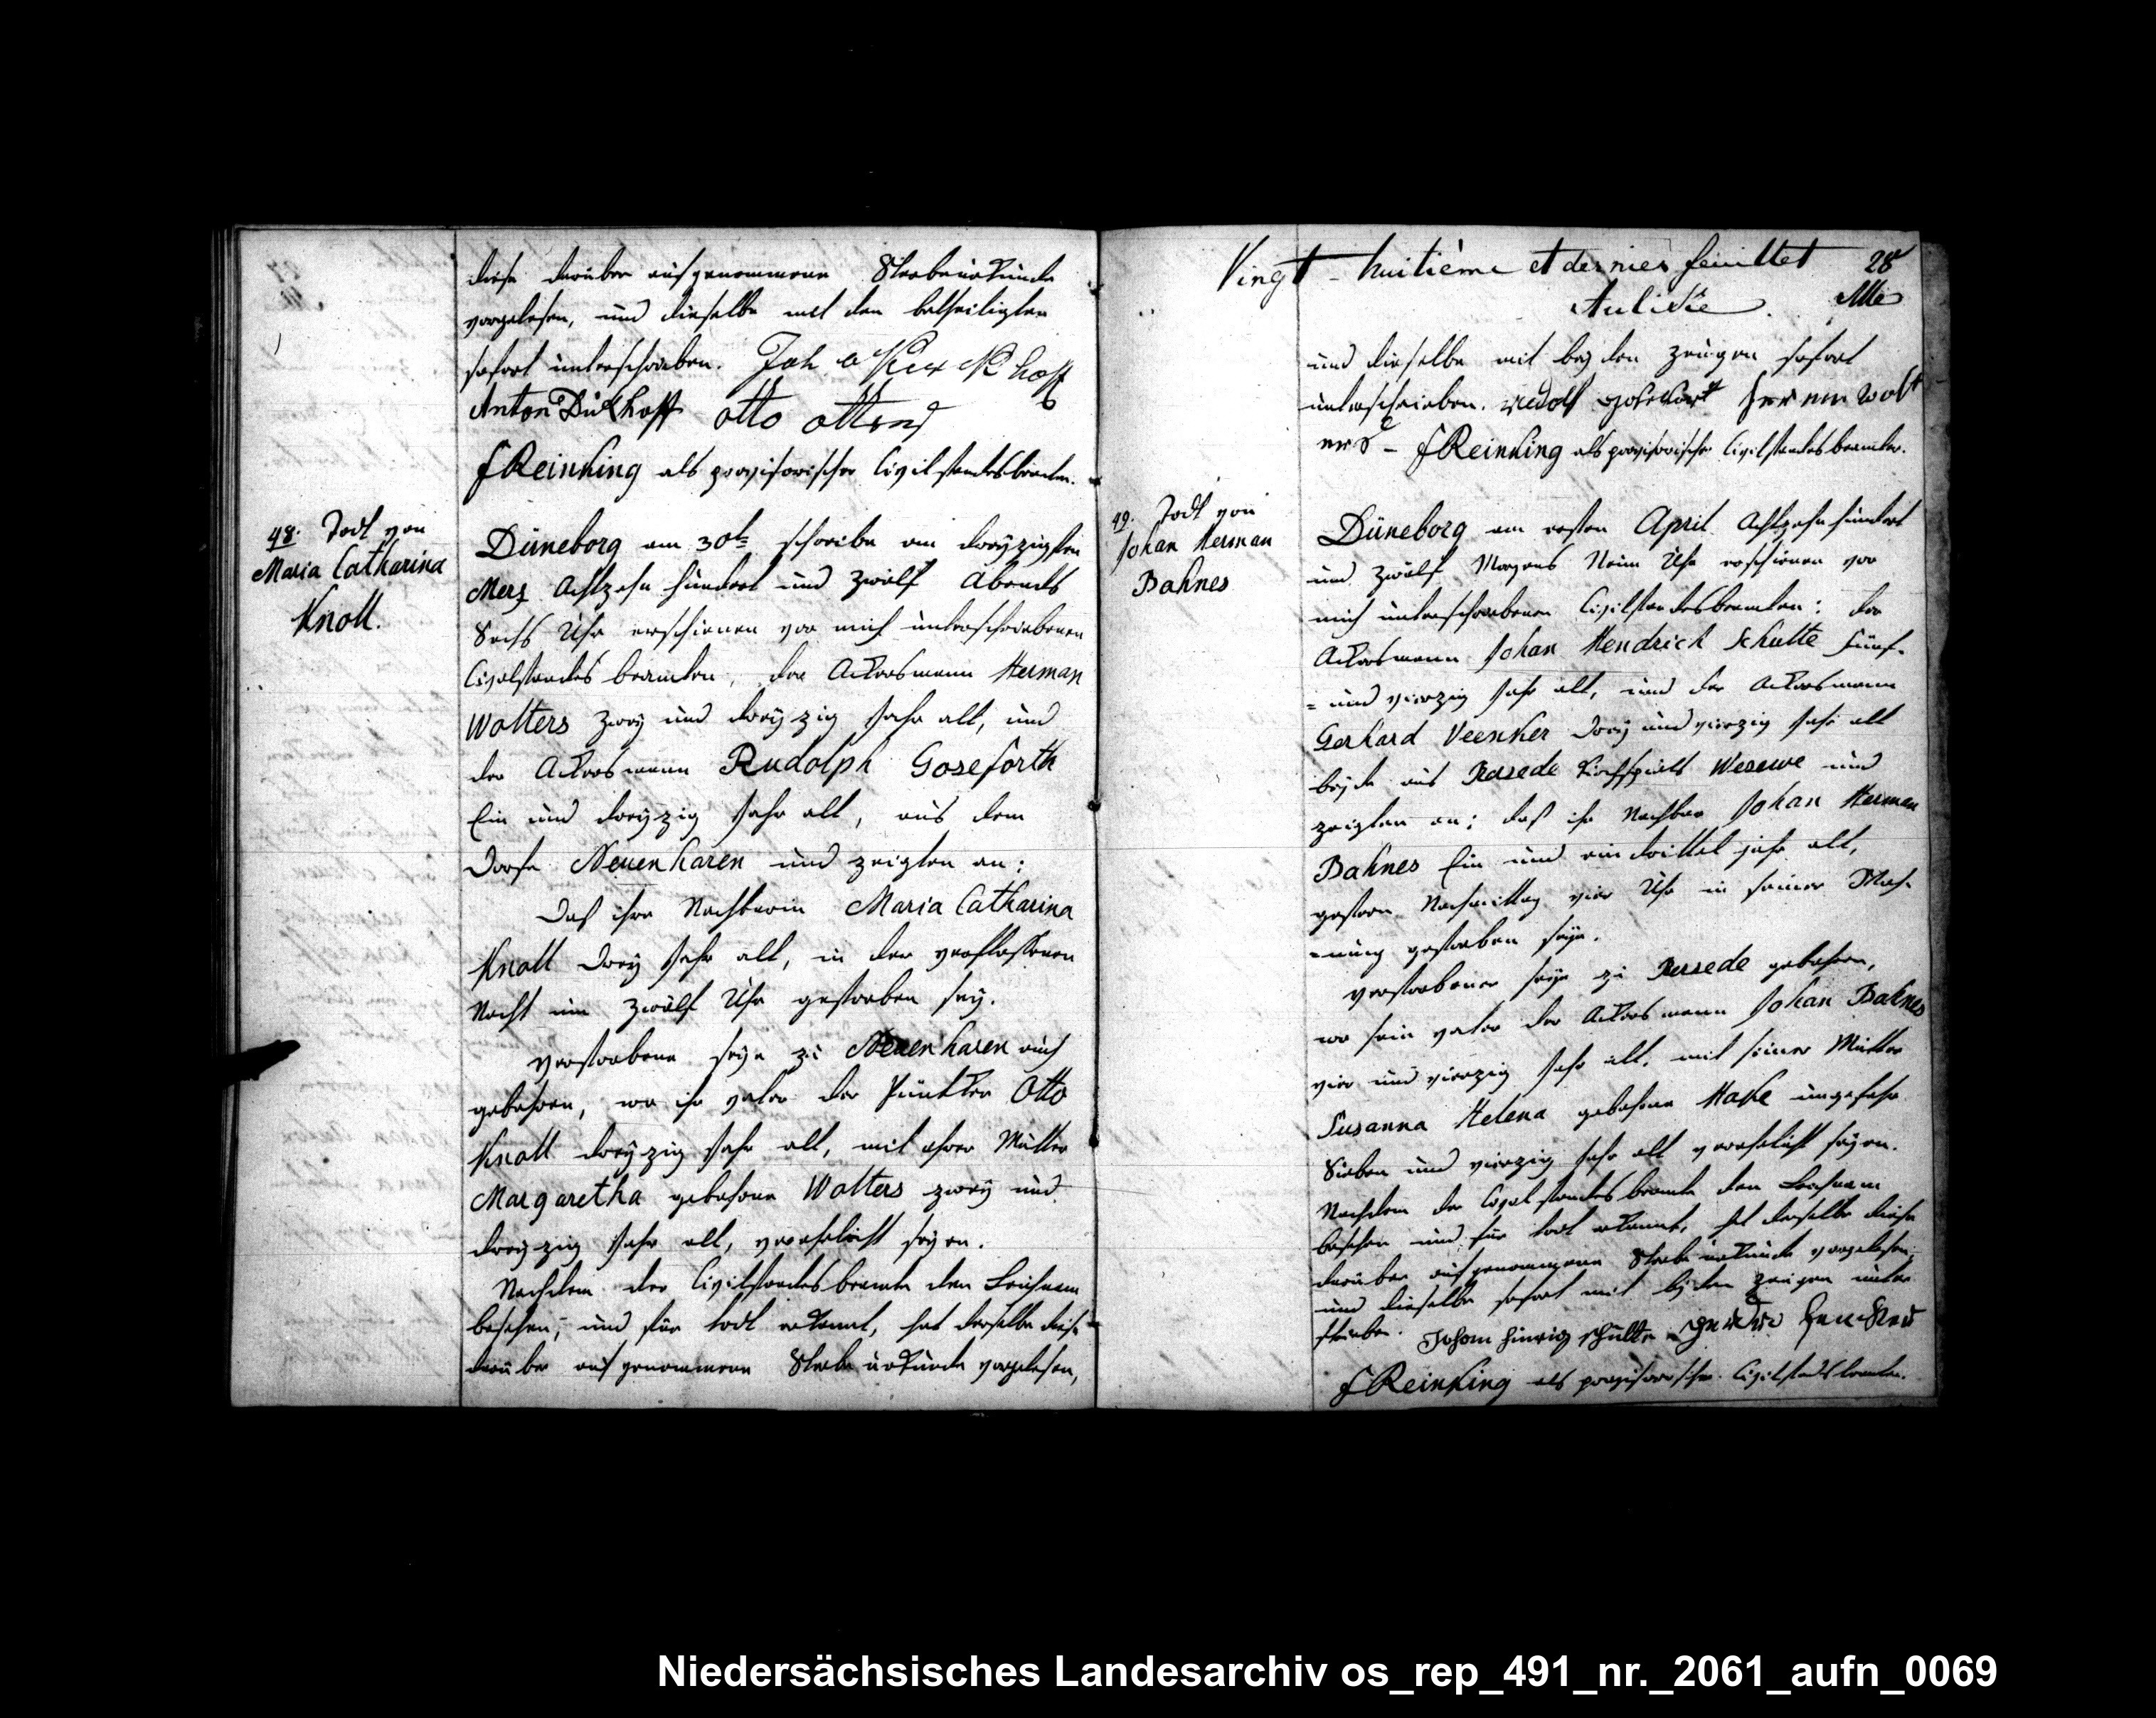 diese darüber aufgenommene Sterbeurkunde
vorgelesen, und dieselbe mit den betheiligten
sofort unterschrieben. Joh
Anton Dükhoff otto ottens
F Reinking als provisorischer Civilstandsbeamter.
48. Todt von
Maria Catharina
Knoll.
Düneborg am 30t schreibe am dreyzigsten
Merz Achtzehn hundert und zwölf Abends
Sechs Uhr erschienen vor mich unterschriebenen
Civilstandes beamten, der Ackersmann Herman
Wolters zwey und dreyzig Jahr alt, und
der Ackersmann Rudolph Goseforth
Ein und dreyzig Jahr alt, aus dem
Dorfe Neuenharen und zeigten an:
Daß ihre Nachbarin Maria Catharina
Knoll Drey Jahr alt, in der verflossenen
Nacht um zwölf Uhr gestorben sey.
Verstorbene seye zu Neuenharen auch
gebohren, wo ihr vater der Pünkter Otto
Knoll dreyzig Jahr alt, mit ihrer Mutter
Margaretha gebohrne Wolters zwey und
dreyzig Jahr alt, verehelicht seyen.
Nachdem der Civilstandes beamte den Leichnam
besehen, und für todt erkannt, hat derselbe diese
darüber aufgenommene Sterbe urkunde vorgelesen,
Vingt-huitième et dernier feuillet 28
und dieselbe mit beyden zeugen sofort
unterschrieben. Rudolf Gosefort Hermen Wolt
ers - F Reinking als provisorischer Civilstandesbeamter.
49. Todt von
Johan Herman
Bahnes
Düneborg am ersten April Achtzehnhundert
und zwölf Morgens Neun Uhr erschienen vor
mich unterschriebenen Civilstandesbeamten: der
Ackersmann Johan Hendrich Schulte fünf-
= und vierzig Jahr alt, und der Ackersmann
Gerhard Veenker Drey und vierzig Jahr alt
beyde aus Versede Kirchspiels Wesewe und
zeigten an; daß ihr Nachbar Johan Herman
Bahnes Ein und ein drittel jahr alt,
gestern Nachmittag vier Uhr in seiner Woh-
-nung gestorben seye.
Verstorbener seye zu Versede gebohren,
wo sein vater der Ackersmann Johan Bahnes
vier und vierzig Jahr alt, mit seiner Mutter
Susanna Helena gebohrne Hake ungefehr
Sieben und vierzig Jahr alt verehelicht seyen.
Nachdem der Civilstandesbeamte den Leichnam
besehen und für todt erkannt, hat derselbe diese
darüber aufgenommene Sterbeurkunde vorgelesen,
und dieselbe sofort mit beyden zeugen unter
schrieben. Johan Hinrig Schulte
F Reinking als provisorischer Civilstandsbeamter.
Niedersächsisches Landesarchiv os_rep_491_nr._2061_aufn_0069